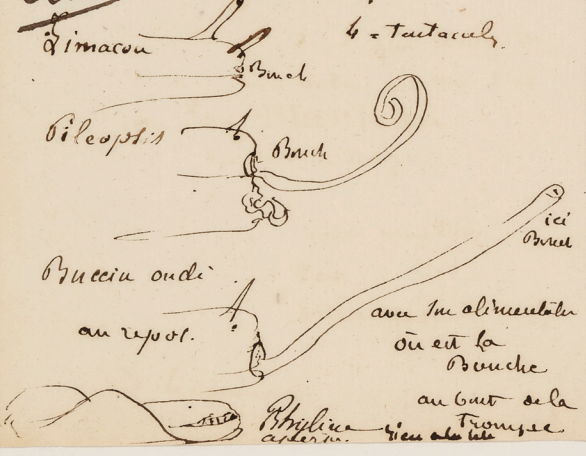 Limaçon
4 = tentacules.
Bouch
Pileopsis
Bouch
ici
Bouch
Buccin ondé
au repos.
avec son alimentation
où est la
Bouche
au bout de la
Trompe
Phyline
aperta.
rien à la tête